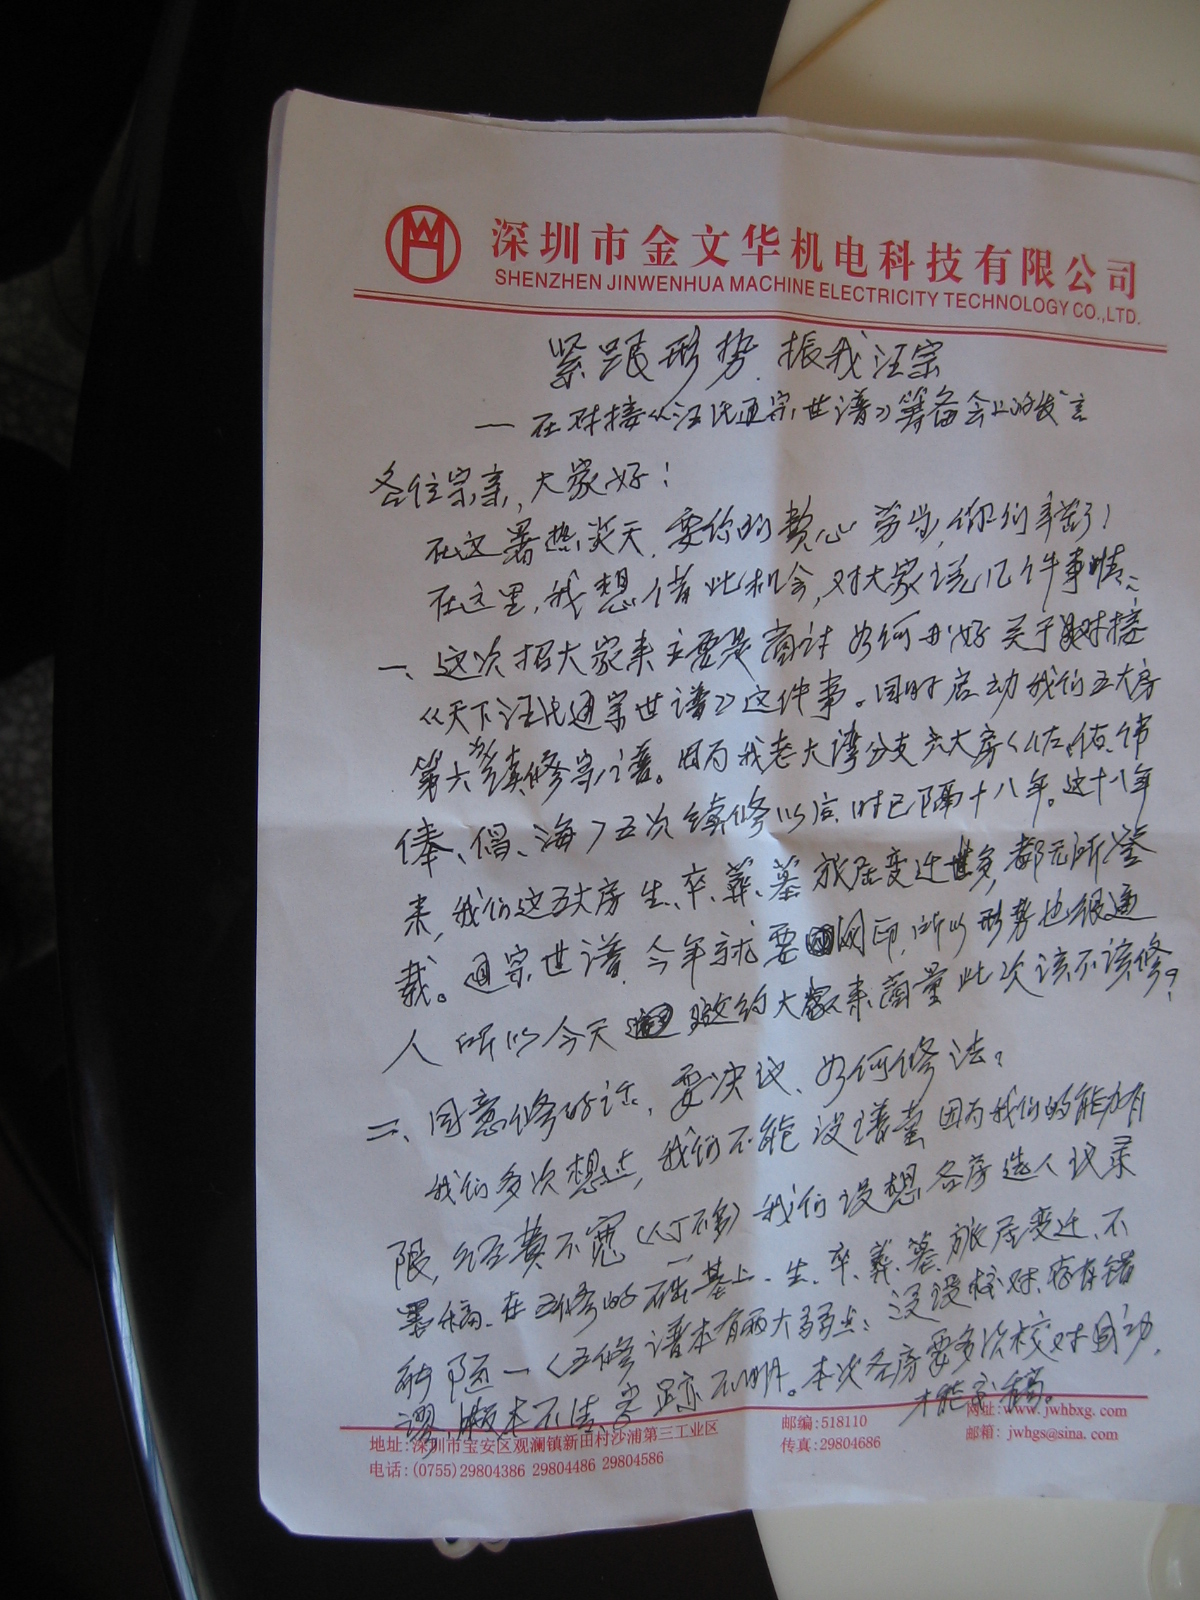 深圳市金文华机电科技有限公司
SHENZHEN JINWENHUA MACHINE ELECTRICITY TECHNOLOGY CO.,LTD.
紧跟形势 振我汪宗
—在对接《汪氏通宗世谱》筹备会上的发言
各位宗亲,大家好!
在这暑热炎天,要你的费心劳当,你们辛苦了!
在这里,我想借此机会,对大家说几件事情:
一、这次招大家来主要是商讨如何办好关于对接
《天下汪氏通宗世谱》这件事。同时启动我们五大房
第六次续修宗谱。因为我老大湾分支六大房(佐、佑、伟
俸、倡、海)五次续修以后,时已隔十八年。这十八年
来,我们这五大房生、卒、葬、墓、旅居变迁甚多,都无所登
载。通宗世谱,今年就要网印,所以形势也很逼
人 所以今天邀约大家来商量此次该不该修?
二、同意修的话,要决议、如何修法?
我们多次想过,我们不能设谱堂 因为我们的能力有
限,经费不宽(人丁不多)我们设想各房选人议录
墨稿、在五修的础基上、生、卒、葬、墓、旅居变迁、不
能陋一(五修谱本有两大弱点:没设校对、存在错
谬,版本不清、字迹不明。本次各房要多次校对
才能定稿。
地址:深圳市宝安区观澜镇新田村沙浦第三工业区
邮编:518110
网址:www.jwhbxg.com
电话:(0755)29804386 29804486 29804586
传真:29804686
邮箱:jwhgs@sina.com